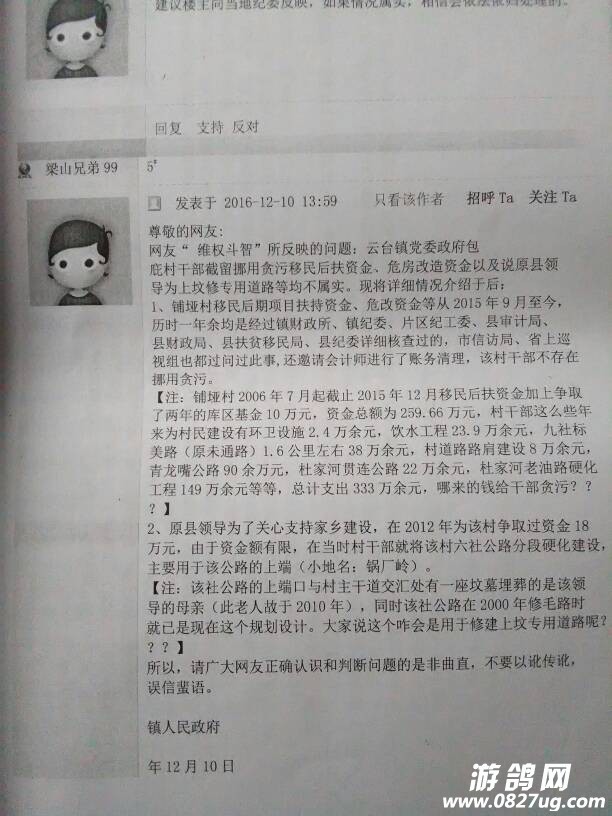 建议楼主向当地纪委反映，如果情况属实，相信会依法依归处理的。
回复 支持 反对
梁山兄弟99
5#
发表于 2016-12-10 13:59 只看该作者 招呼Ta 关注Ta
尊敬的网友:
网友“ 维权斗智”所反映的问题；云台镇党委政府包
庇村干部截留挪用贪污移民后扶资金、危房改造资金以及说原县领
导为上坟修专用道路等均不属实。现将详细情况介绍于后：
1、铺垭村移民后期项目扶持资金、危改资金等从2015年9月至今，
历时一年余均是经过镇财政所、镇纪委、片区纪工委、县审计局、
县财政局、县扶贫移民局、县纪委详细核查过的，市信访局、省上巡
视组也都过问过此事,还邀请会计师进行了账务清理，该村干部不存在
挪用贪污。
【注：铺垭村2006年7月起截止2015年12月移民后扶资金加上争取
了两年的库区基金10万元，资金总额为259.66万元，村干部这么些年
来为村民建设有环卫设施2.4万余元，饮水工程23.9万余元，九社标
美路（原未通路）1.6公里左右38万余元，村道路路肩建设8万余元，
青龙嘴公路90余万元，杜家河贯连公路22万余元，杜家河老油路硬化
工程149万余元等等，总计支出333万余元，哪来的钱给干部贪污？？
？】
2、原县领导为了关心支持家乡建设，在2012年为该村争取过资金18
万元，由于资金额有限，在当时村干部就将该村六社公路分段硬化建设，
主要用于该公路的上端（小地名：锅厂岭）。
【注：该社公路的上端口与村主干道交汇处有一座坟墓埋葬的是该领
导的母亲（此老人故于2010年），同时该社公路在2000年修毛路时
就已是现在这个规划设计。大家说这个咋会是用于修建上坟专用道路呢？
？？】
所以，请广大网友正确认识和判断问题的是非曲直，不要以讹传讹，
误信蜚语。
镇人民政府
年12月10日
游鸽网
www.0827ug.com